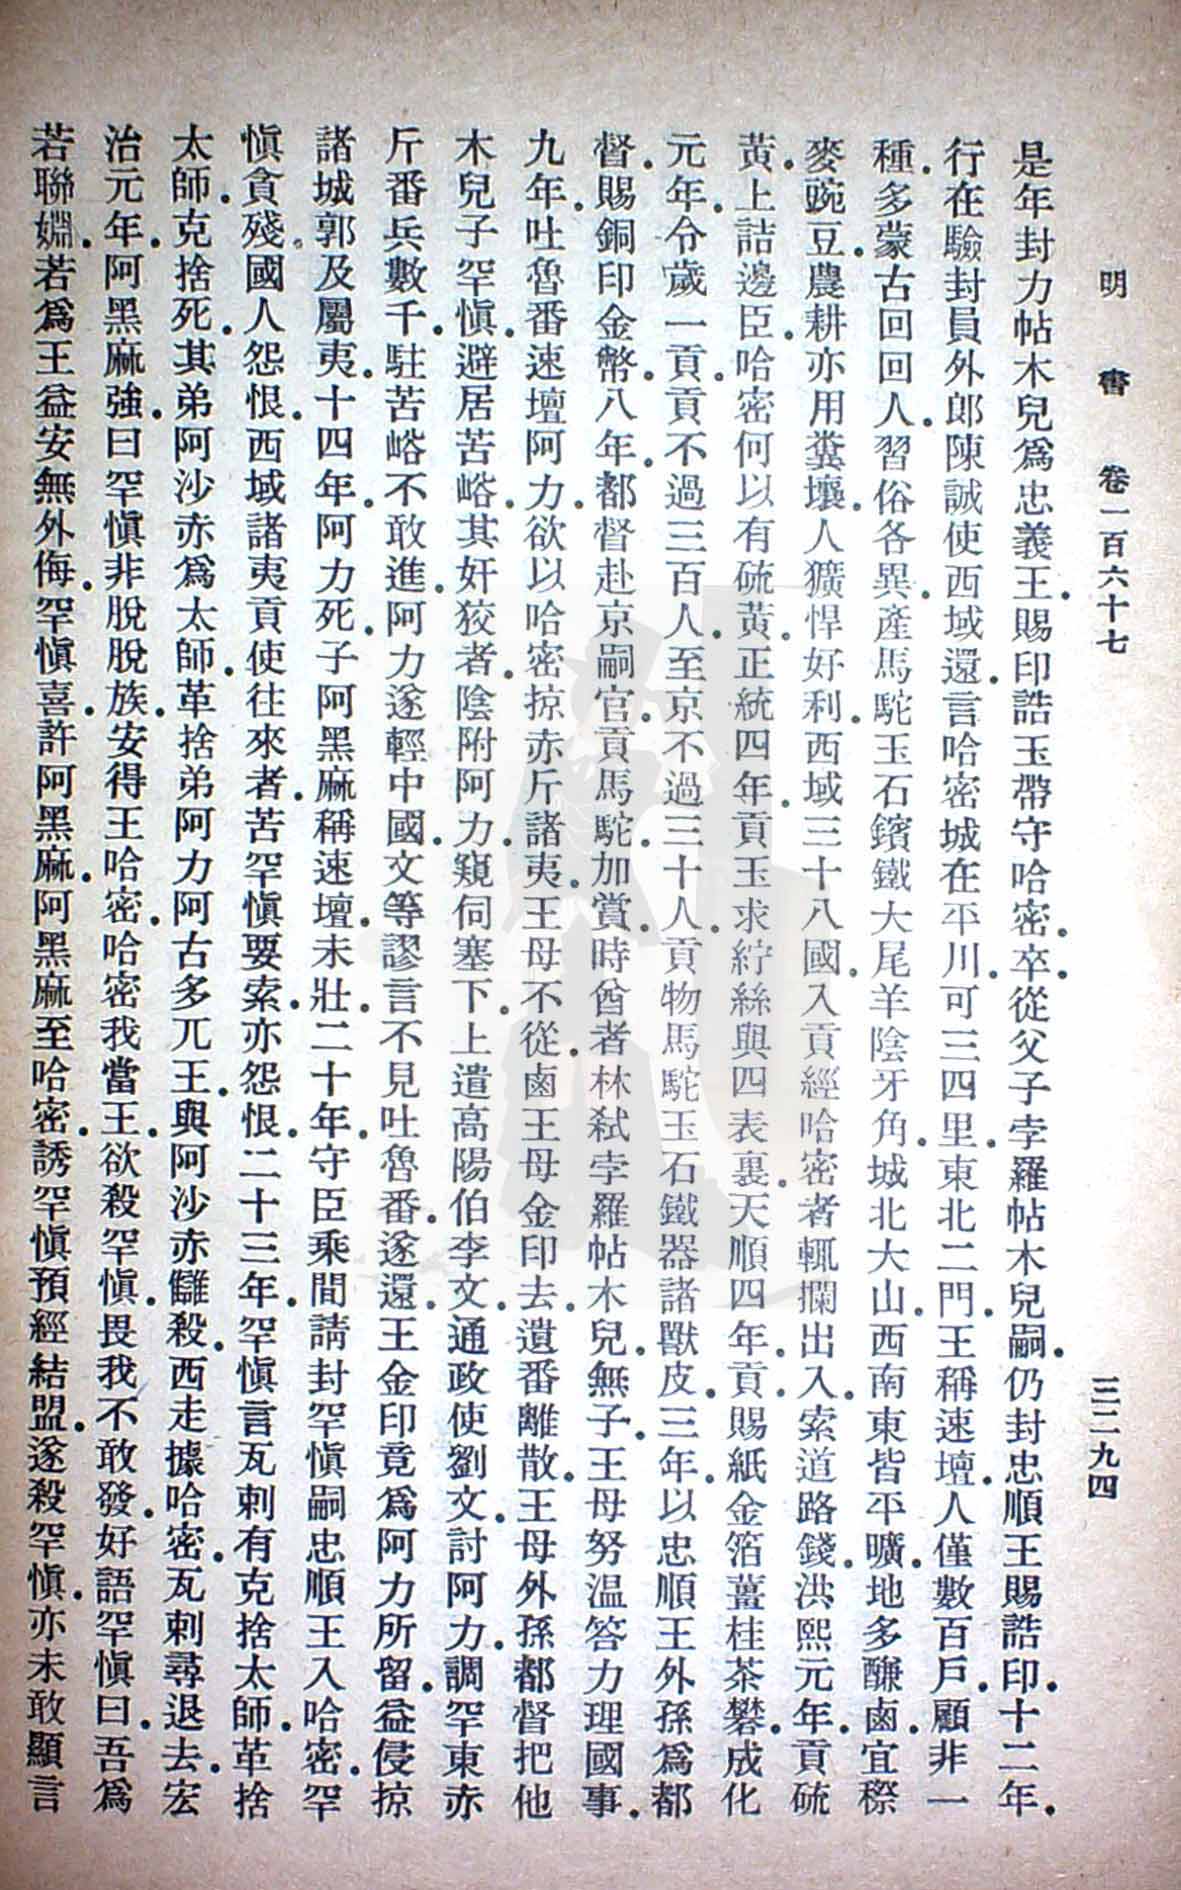 明書 卷一百六十七 三二九四
是年封力帖木兒爲忠義王.賜印誥玉帶守哈密.卒.從父子孛羅帖木兒嗣.仍封忠順王賜誥印.十二年.
行在驗封員外郎陳誠使西域還.言哈密城在平川.可三四里.東北二門.王稱速壇.人僅數百戶.顧非一
種.多蒙古回回人.習俗各異.產馬駝玉石鑌鐵大尾羊陰牙角.城北大山.西南東皆平曠.地多醶鹵.宜穄
麥豌豆.農耕亦用糞壤.人獷悍好利.西域三十八國.入貢經哈密者輒攔出入.索道路錢.洪熙元年.貢硫
黃.上詰邊臣.哈密何以有硫黃.正統四年.貢玉求紵絲與四表裏.天順四年.貢.賜紙金箔薑桂茶礬.成化
元年.令歲一貢.貢不過三百人.至京不過三十人.貢物馬駝玉石鐵器諸獸皮.三年.以忠順王外孫爲都
督.賜銅印金幣.八年.都督赴京嗣官.貢馬駝.加賞.時酋者林弒孛羅帖木兒.無子.王母努温答力理國事.
九年.吐魯番速壇阿力.欲以哈密掠赤斤諸夷.王母不從.鹵王母金印去.遺番離散.王母外孫都督把他
木兒子罕愼.避居苦峪.其奸狡者.陰附阿力.窺伺塞下.上遣高陽伯李文.通政使劉文.討阿力.調罕東赤
斤番兵數千.駐苦峪不敢進.阿力遂輕中國.文等謬言不見吐魯番.遂還.王金印竟爲阿力所留.益侵掠
諸城郭及屬夷.十四年.阿力死.子阿黑麻稱速壇.未壯.二十年.守臣乘間請封罕愼嗣忠順王入哈密.罕
愼貪殘.國人怨恨.西域諸夷貢使往來者.苦罕愼要索.亦怨恨.二十三年.罕愼言瓦剌有克捨太師.革捨
太師.克捨死.其弟阿沙赤爲太師.革捨弟阿力阿古多兀王.與阿沙赤讎殺.西走據哈密.瓦剌尋退去.宏
治元年.阿黑麻強.曰罕愼非脫脫族.安得王哈密.哈密我當王.欲殺罕愼.畏我不敢發.好語罕愼曰.吾爲
若聯婣.若爲王益安無外侮.罕愼喜.許阿黑麻.阿黑麻至哈密.誘罕愼預經結盟.遂殺罕愼.亦未敢顯言